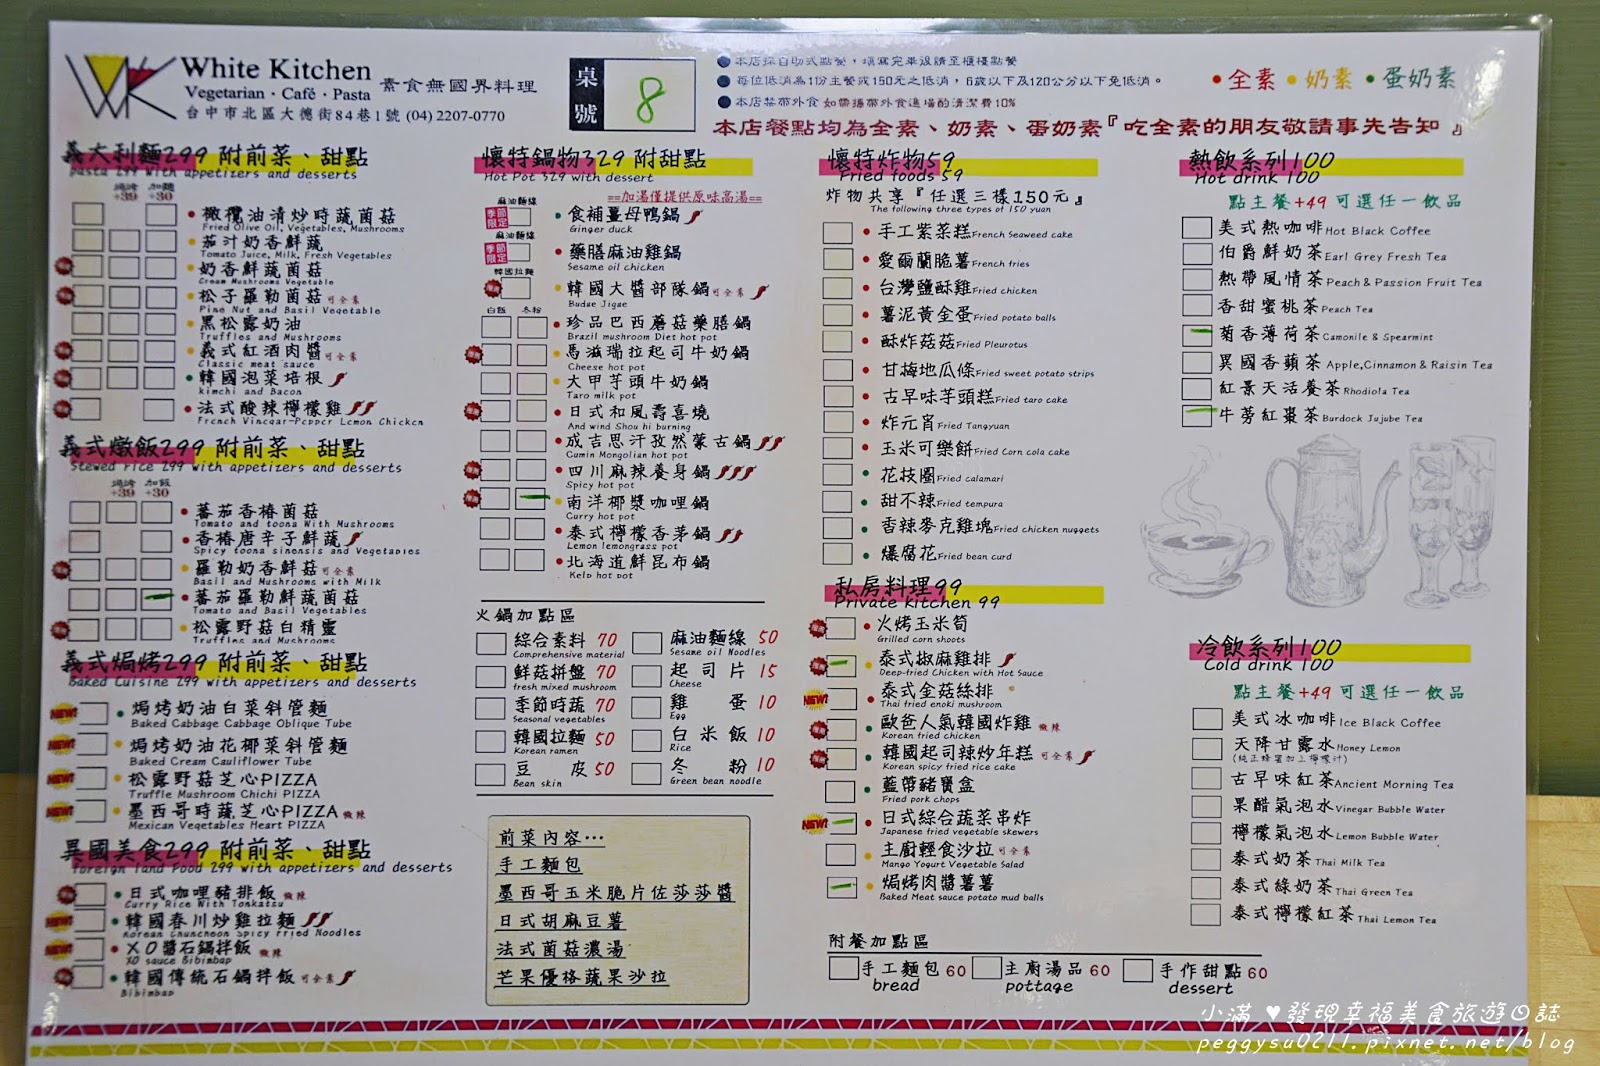 White Kitchen
Vegetarian · Café · Pasta 素食無國界料理
台中市北區大德街84巷1號 (04) 2207-0770
桌號 8
本店採自助式點餐，填寫完畢後請至櫃檯點餐
每位低消為1份主餐或150元之低消，6歲以下及120公分以下免低消。
本店禁帶外食 如需攜帶外食進場酌清潔費10%
全素 奶素 蛋奶素
本店餐點均為全素、奶素、蛋奶素『吃全素的朋友敬請事先告知』
義大利麵299 附前菜、甜點
pasta 299 with appetizers and desserts
焗烤 +39 加麵 +30
橄欖油清炒時蔬菌菇
Fried Olive Oil, Vegetables, Mushrooms
茄汁奶香鮮蔬
Tomato Juice, Milk, Fresh Vegetables
奶香鮮蔬菌菇
Cream Mushrooms Vegetable
松子羅勒菌菇 可全素
Pine Nut and Basil Vegetable
黑松露奶油
Truffles and Mushrooms
義式紅酒肉醬 可全素
Classic meat sauce
韓國泡菜培根
kimchi and Bacon
法式酸辣檸檬雞
French Vinegar-Pepper Lemon Chicken
義式燉飯299 附前菜、甜點
Stewed rice 299 with appetizers and desserts
焗烤 +39 加飯 +30
蕃茄香椿菌菇
Tomato and toona With Mushrooms
香椿唐辛子鮮蔬
Spicy toona sinensis and Vegetables
羅勒奶香鮮菇 可全素
Basil and Mushrooms with Milk
蕃茄羅勒鮮蔬菌菇
Tomato and Basil Vegetables
松露野菇白精靈
Truffles and Mushrooms
義式焗烤299 附前菜、甜點
Baked Cuisine 299 with appetizers and desserts
NEW! 焗烤奶油白菜斜管麵
Baked Cabbage Cabbage Oblique Tube
NEW! 焗烤奶油花椰菜斜管麵
Baked Cream Cauliflower Tube
NEW! 松露野菇芝心PIZZA
Truffle Mushroom Chichi PIZZA
NEW! 墨西哥時蔬芝心PIZZA 微辣
Mexican Vegetables Heart PIZZA
異國美食299 附前菜、甜點
foreign land Food 299 with appetizers and desserts
日式咖哩豬排飯 微辣
Curry Rice With Tonkatsu
NEW! 韓國春川炒雞拉麵
Korean Chuncheon Spicy Fried Noodles
NEW! XO醬石鍋拌飯 微辣
XO sauce Bibimbap
韓國傳統石鍋拌飯 可全素
Bibimbap
懷特鍋物329 附甜點
Hot Pot 329 with dessert
==加湯僅提供原味高湯==
麻油麵線
季節限定 食補薑母鴨鍋
Ginger duck
麻油麵線
季節限定 藥膳麻油雞鍋
Sesame oil chicken
韓國拉麵
韓國大醬部隊鍋 可全素
Budae Jigae
白飯 冬粉
珍品巴西蘑菇藥膳鍋
Brazil mushroom Diet hot pot
馬滋瑞拉起司牛奶鍋
Cheese hot pot
大甲芋頭牛奶鍋
Taro milk pot
日式和風壽喜燒
And wind Shou hi burning
成吉思汗孜然蒙古鍋
Cumin Mongolian hot pot
四川麻辣養身鍋
Spicy hot pot
南洋椰漿咖哩鍋
Curry hot pot
泰式檸檬香茅鍋
Lemon lemongrass pot
北海道鮮昆布鍋
Kelp hot pot
火鍋加點區
綜合素料 70
Comprehensive material
麻油麵線 50
Sesame oil Noodles
鮮菇拼盤 70
fresh mixed mushroom
起司片 15
Cheese
季節時蔬 70
Seasonal vegetables
雞蛋 10
Egg
韓國拉麵 50
Korean ramen
白米飯 10
Rice
豆皮 50
Bean skin
冬粉 10
Green bean noodle
前菜內容…
手工麵包
墨西哥玉米脆片佐莎莎醬
日式胡麻豆薯
法式菌菇濃湯
芒果優格蔬果沙拉
懷特炸物59
Fried foods 59
炸物共享『任選三樣150元』
The following three types of 150 yuan
手工紫菜糕 French Seaweed cake
愛爾蘭脆薯 French fries
台灣鹽酥雞 Fried chicken
薯泥黃金蛋 Fried potato balls
酥炸菇菇 Fried Pleurotus
甘梅地瓜條 Fried sweet potato strips
古早味芋頭糕 Fried taro cake
炸元宵 Fried Tangyuan
玉米可樂餅 Fried Corn cola cake
花枝圈 Fried calamari
甜不辣 Fried tempura
香辣麥克雞塊 Fried chicken nuggets
爆腐花 Fried bean curd
私房料理99
Private kitchen 99
火烤玉米筍
Grilled corn shoots
泰式椒麻雞排
Deep-fried Chicken with Hot Sauce
NEW! 泰式金菇絲排
Thai fried enoki mushroom
歐爸人氣韓國炸雞 微辣
Korean fried chicken
韓國起司辣炒年糕 可全素
Korean spicy fried rice cake
藍帶豬寶盒
Fried pork chops
NEW! 日式綜合蔬菜串炸
Japanese fried vegetable skewers
主廚輕食沙拉 可全素
Mango Yogurt Vegetable Salad
焗烤肉醬薯薯
Baked Meat sauce potato mud balls
附餐加點區
手工麵包 60 主廚湯品 60 手作甜點 60
bread pottage dessert
熱飲系列100
Hot drink 100
點主餐+49 可選任一飲品
美式熱咖啡 Hot Black Coffee
伯爵鮮奶茶 Earl Grey Fresh Tea
熱帶風情茶 Peach & Passion Fruit Tea
香甜蜜桃茶 Peach Tea
菊香薄荷茶 Camonile & Spearmint
異國香蘋茶 Apple,Cinnamon & Raisin Tea
紅景天活養茶 Rhodiola Tea
牛蒡紅棗茶 Burdock Jujube Tea
冷飲系列100
Cold drink 100
點主餐+49 可選任一飲品
美式冰咖啡 Ice Black Coffee
天降甘露水 Honey Lemon
(純正蜂蜜加上檸檬汁)
古早味紅茶 Ancient Morning Tea
果醋氣泡水 Vinegar Bubble Water
檸檬氣泡水 Lemon Bubble Water
泰式奶茶 Thai Milk Tea
泰式綠奶茶 Thai Green Tea
泰式檸檬紅茶 Thai Lemon Tea
小滿♥發現幸福美食旅遊日誌
peggysu0211.pixnet.net/blog